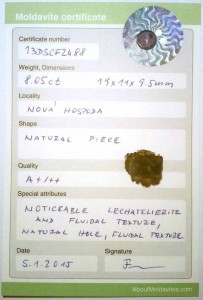 Moldavite certificate
Certificate number
13DSCF2488
Weight, Dimensions
8.05ct 19x11x9.5mm
Locality
NOVÁ HOSPODA
Shape
NATURAL PIECE
Quality
A+/++
Special attributes
NOTICEABLE LECHATELIERITE
AND FLUIDAL TEXTURE,
NATURAL HOLE, FLUIDAL TEXTURE
Date
Signature
5.1.2015
AboutMoldavites.com